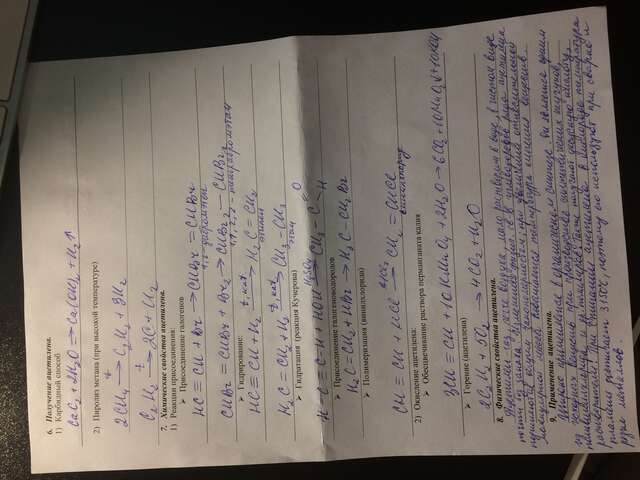 6. Получение ацетилена.
1) Карбидный способ
CaC₂ + 2H₂O → Ca(OH)₂ + H₂↑
2) Пиролиз метана (при высокой температуре)
2CH₄ →t C₂H₂ + 3H₂
C₂H₂ →t 2C + H₂
7. Химические свойства ацетилена.
1) Реакции присоединения:
➢ Присоединение галогенов
HC ≡ CH + Br → CHBr = CHBr
1,2-дибромэтен
CHBr = CHBr + Br₂ → CHBr₂ — CHBr₂
1,1,2,2 - тетрабромэтан
➢ Гидрирование:
HC ≡ CH + H₂ →t, kat H₂C = CH₂
этилен
H₂C = CH₂ + H₂ →t, kat CH₃ – CH₃
этан
➢ Гидратация (реакция Кучерова)
H – C ≡ C – H + HOH →H₂SO₄ CH₃ – C O H
➢ Присоединение галогеноводородов
H₂C = CH₂ + HBr → H₃C – CH₂Br
➢ Полимеризация (винилхлорида)
CH ≡ CH + HCl → CH₂ = CHCl
винилхлорид
2) Окисление ацетилена:
➢ Обесцвечивание раствора перманганата калия
3CH ≡ CH + 10KMnO₄ + 2H₂O → 6CO₂ + 10MnO₂↓ + 10KOH
➢ Горение (ацетилена)
2C₂H₂ + 5O₂ → 4CO₂ + H₂O
8. Физические свойства ацетилена.
Ацетилен газ, легче воздуха, мало растворим в воде, в чистом виде
почти без запаха. Изменения физич. св-в углеводородов ряда ацетилена
подчиняются общим закономерностям; при увеличении относительной
молекулярной массы повышается температура кипения веществ.
9. Применение ацетилена.
Широко применяется в органическом синтезе. Он является одним
из исходных веществ при производстве синтетических каучуков,
поливинилхлорида и др. полимеров. Также получают уксусную кислоту,
растворители. При сжигании ацетилена в кислороде температура
пламени достигает 3150°C, поэтому его используют при сварке и
резке металлов.